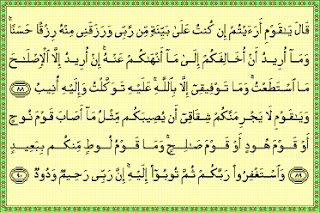 قَالَ يَـٰقَوْمِ أَرَءَيْتُمْ إِن كُنتُ عَلَىٰ بَيِّنَةٍ مِّن رَّبِّى وَرَزَقَنِى مِنْهُ رِزْقًا حَسَنًا ۚ
وَمَآ أُرِيدُ أَنْ أُخَالِفَكُمْ إِلَىٰ مَآ أَنْهَىٰكُمْ عَنْهُ ۚ إِنْ أُرِيدُ إِلَّا ٱلْإِصْلَـٰحَ
مَا ٱسْتَطَعْتُ ۚ وَمَا تَوْفِيقِىٓ إِلَّا بِٱللَّهِ ۚ عَلَيْهِ تَوَكَّلْتُ وَإِلَيْهِ أُنِيبُ ٨٨
وَيَـٰقَوْمِ لَا يَجْرِمَنَّكُمْ شِقَاقِىٓ أَن يُصِيبَكُم مِّثْلُ مَآ أَصَابَ قَوْمَ نُوحٍ
أَوْ قَوْمَ هُودٍ أَوْ قَوْمَ صَـٰلِحٍ ۚ وَمَا قَوْمُ لُوطٍ مِّنكُم بِبَعِيدٍ
٨٩ وَٱسْتَغْفِرُوا۟ رَبَّكُمْ ثُمَّ تُوبُوٓا۟ إِلَيْهِ ۚ إِنَّ رَبِّى رَحِيمٌ وَدُودٌ ٩٠